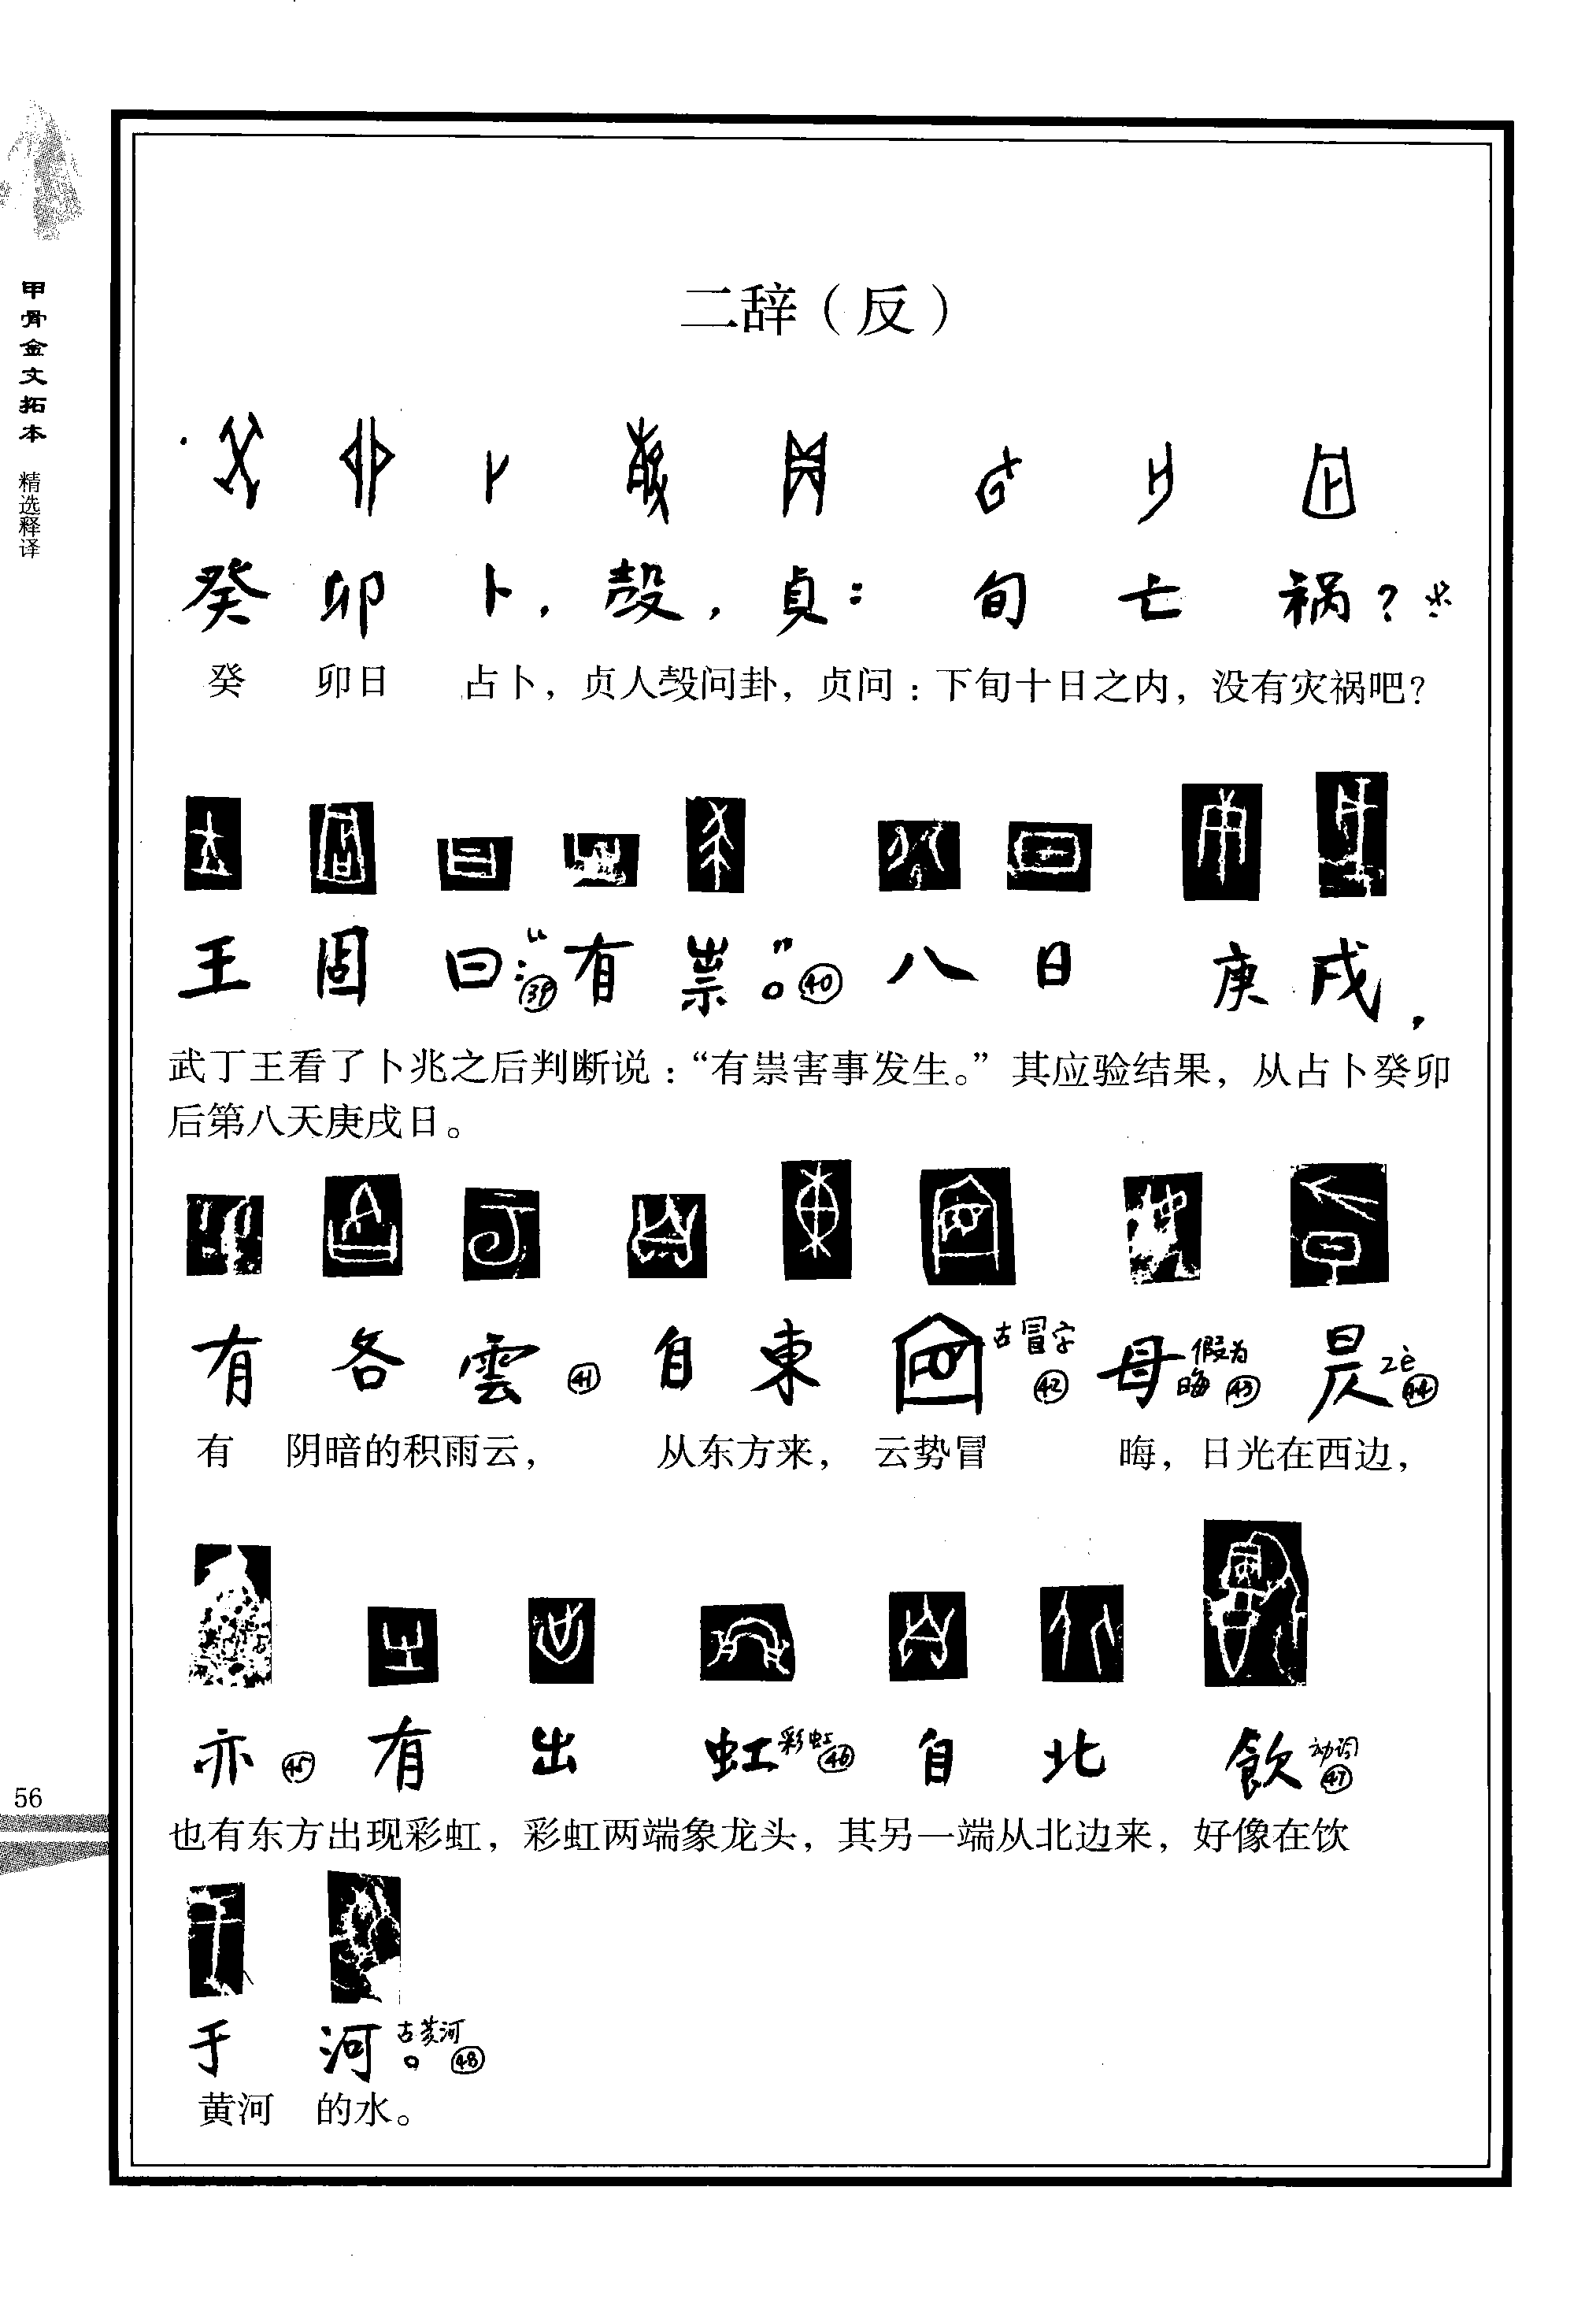 甲骨金文拓本 精选释译
二辞（反）
癸 卯 卜，殻，貞：旬 亡 祸？
癸 卯日 占卜，贞人殻问卦，贞问：下旬十日之内，没有灾祸吧？
王 固 曰：㊴“有 祟”。㊵ 八 日 庚 戌，
武丁王看了卜兆之后判断说：“有祟害事发生。”其应验结果，从占卜癸卯
后第八天庚戌日。
有 各 雲 ㊶ 自 東 古冒字 ㊷ 母 假为晦 ㊸ 昃 zè ㊹
有 阴暗的积雨云， 从东方来， 云势冒 晦，日光在西边，
亦 ㊺ 有 出 虹 彩虹 ㊻ 自 北 飲 动词 ㊼
也有东方出现彩虹，彩虹两端象龙头，其另一端从北边来，好像在饮
于 河 古黄河。㊽
黄河 的水。
56